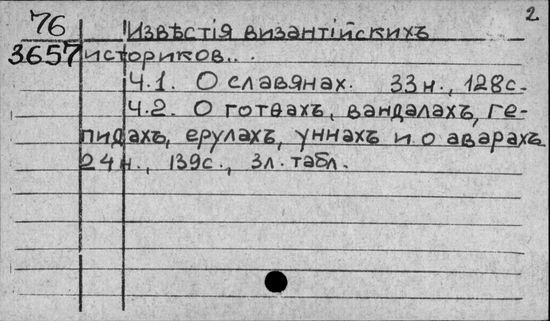 2
76 Извѣстія византійскихъ
3657 историковъ...
Ч.1. О славянах. 33н., 128с.
Ч.2. О готѳахъ, вандалахъ, ге-
пидахъ, ерулахъ, уннахъ и о аварахъ
24н., 139с., 3л. табл.